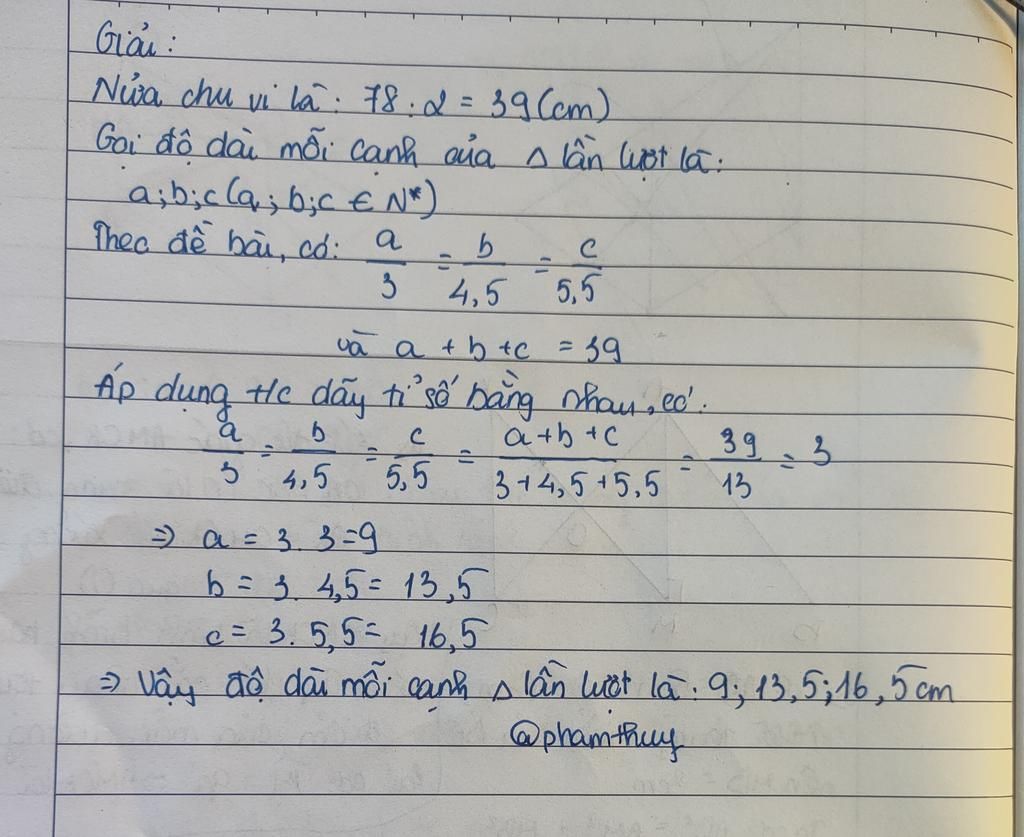 Giải:
Nửa chu vi là: 78:2 = 39(cm)
Gọi độ dài mỗi cạnh của Δ lần lượt là:
a;b;c(a;b;c ∈ N*)
Theo đề bài, có: a/3 = b/4,5 = c/5,5
và a + b + c = 39
Áp dụng t/c dãy tỉ số bằng nhau, có:
a/3 = b/4,5 = c/5,5 = (a+b+c)/(3+4,5+5,5) = 39/13 = 3
⇒ a = 3. 3=9
b = 3. 4,5= 13,5
c = 3. 5,5= 16,5
⇒ Vậy độ dài mỗi cạnh Δ lần lượt là: 9; 13,5; 16,5cm
@phamthuy